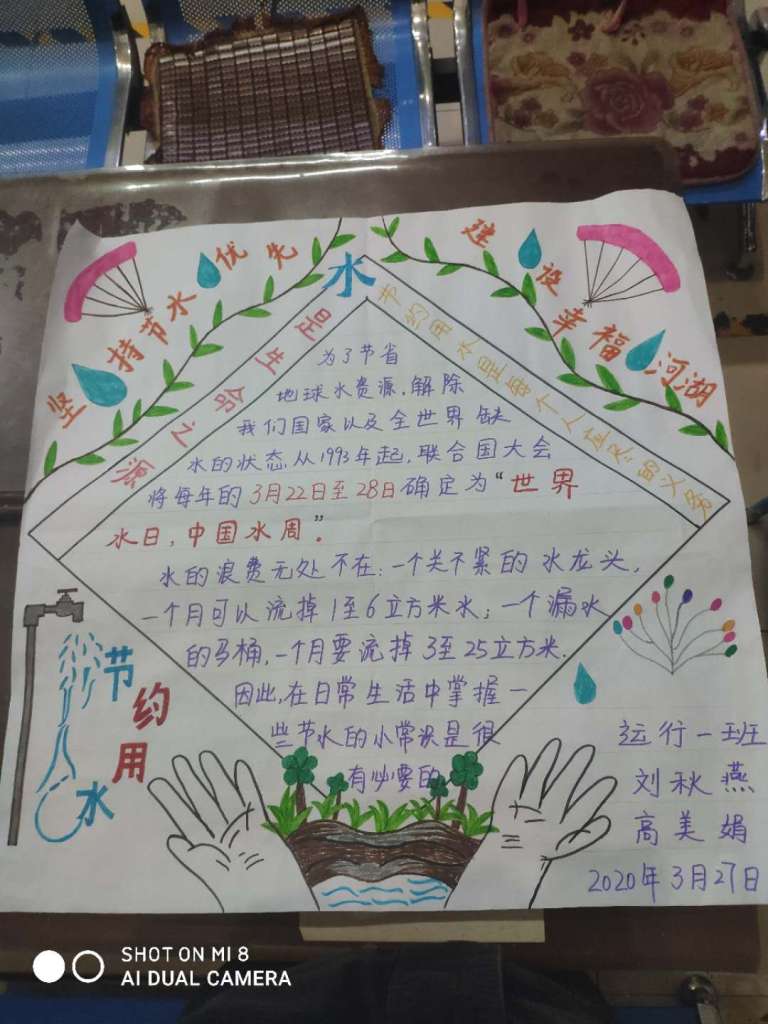 坚持节水优先
建设幸福河湖
水是生命之源
节约用水是每个人应尽的义务
为了节省
地球水资源.解除
我们国家以及全世界缺
水的状态.从1993年起,联合国大会
将每年的3月22日至28日确定为“世界
水日,中国水周”.
水的浪费无处不在:一个关不紧的水龙头,
一个月可以流掉1至6立方米水;一个漏水
的马桶,一个月要流掉3至25立方米.
因此,在日常生活中掌握一
些节水的小常识是很
有必要的
节约用水
运行一班
刘秋燕
高美娟
2020年3月27日
SHOT ON MI 8
AI DUAL CAMERA